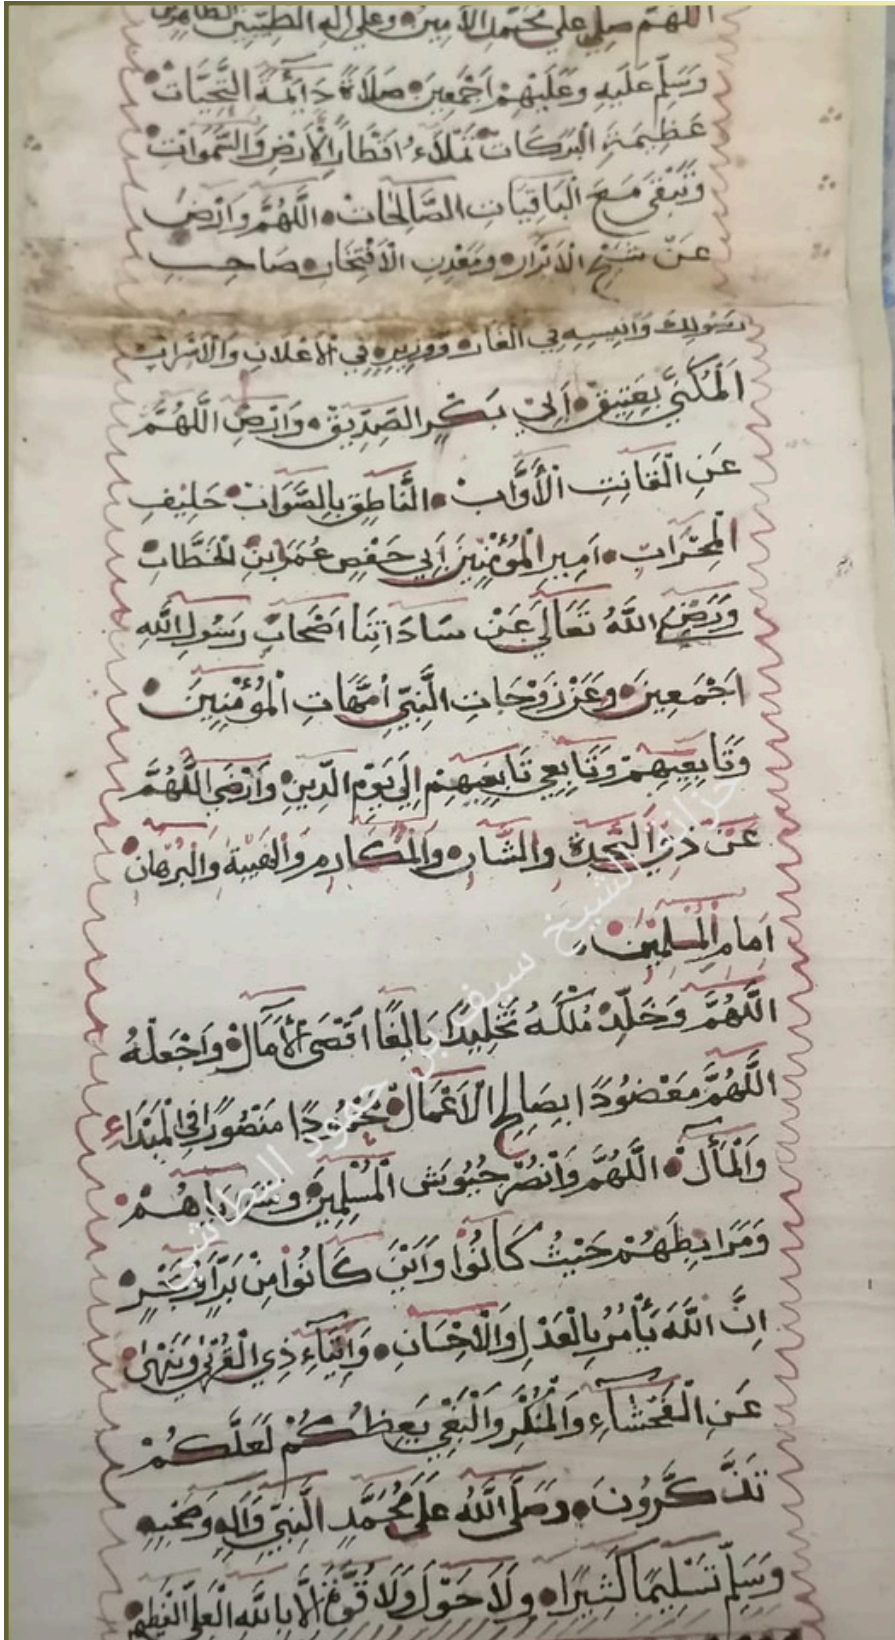 اللهم صلي على محمد الامين وعلى اله الطيبين الطاهرين
وَسَلِّمْ عَلَيْهِ وَعَلَيْهِمْ اَجْمَعِينَ صَلَاةً دَائِمَةَ التَّحِيَّاتِ
عَظِيمَةِ الْبَرَكَاتْ تَمْلَاءُ اقْطَارَ الْاَرْضِ وَالسَّمَوَاتْ
وَتَبْقَى مَعَ الْبَاقِيَاتِ الصَّالِحَاتْ اللَّهُمَّ وَارْضَ
عَنْ شَيْخِ الْاَبْرَارْ وَمَعْدِنِ الْاَفْتِخَارْ صَاحِبِ
رَسُولِكَ وَاَنِيسِهِ فِي الْغَارْ وَوَزِيرِهِ فِي الْاَعْلَانِ وَالْاَسْرَارْ
الْمُكَنَّى بِعَتِيقْ اَبِي بَكْرٍ الصِّدِّيقْ وَارْضَ اللَّهُمَّ
عَنِ الْقَانِتِ الْأَوَّابْ النَّاطِقِ بِالصَّوَابْ حَلِيفِ
الْمِحْرَابْ اَمِيرِ الْمُؤْمِنِينَ اَبِي حَفْصٍ عُمَرَ ابْنِ الْخَطَّابْ
وَرَضِيَ اللَّهُ تَعَالَى عَنْ سَادَاتِنَا اَصْحَابِ رَسُولِ اللَّهِ
اَجْمَعِينَ وَعَنْ زَوْجَاتِ النَّبِيِّ اُمَّهَاتِ الْمُؤْمِنِينَ
وَتَابِعِيهِمْ وَتَابِعِي تَابِعِيهِمْ اِلَى يَوْمِ الدِّينِ وَارْضَ اللَّهُمَّ
عَنْ ذِي النَّجْدَةِ وَالشَّانْ وَالْمَكَارِمِ وَالْهَيْبَةِ وَالْبُرْهَانْ
اِمَامِ الْمُسْلِمِيْنَ
اللَّهُمَّ وَخَلِّدْ مُلْكَهُ تَخْلِيدًا بَالِغًا اَقْصَى الْأَمَالْ وَاجْعَلْهُ
اللَّهُمَّ مَعْضُودًا بِصَالِحِ الْاَعْمَالْ مَحْمُودًا مَنْصُورًا فِي الْمَبْدَاءِ
وَالْمَأَلْ اللَّهُمَّ وَانْصُرْ جُيُوشَ الْمُسْلِمِينَ وَسَرَايَاهُمْ
وَمَرَابِطَهُمْ حَيْثُ كَانُوا وَاَيْنَ كَانُوا مِنْ بَرٍّ اَوْ بَحْرٍ
اِنَّ اللَّهَ يَأْمُرُ بِالْعَدْلِ وَالْاِحْسَانِ وَاِيْتَاءِ ذِي الْقُرْبَى وَيَنْهَى
عَنِ الْفَحْشَاءِ وَالْمُنْكَرِ وَالْبَغْيِ يَعِظُكُمْ لَعَلَّكُمْ
تَذَكَّرُونَ وَصَلَّى اللَّهُ عَلَى مُحَمَّدٍ النَّبِيِّ وَآلِهِ وَصَحْبِهِ
وَسَلِّمْ تَسْلِيمًا كَثِيرًا وَلَا حَوْلَ وَلَا قُوَّةَ اِلَّا بِاللَّهِ الْعَلِيِّ الْعَظِيمِ
خزانة الشيخ سيف بن حمود البطاشي